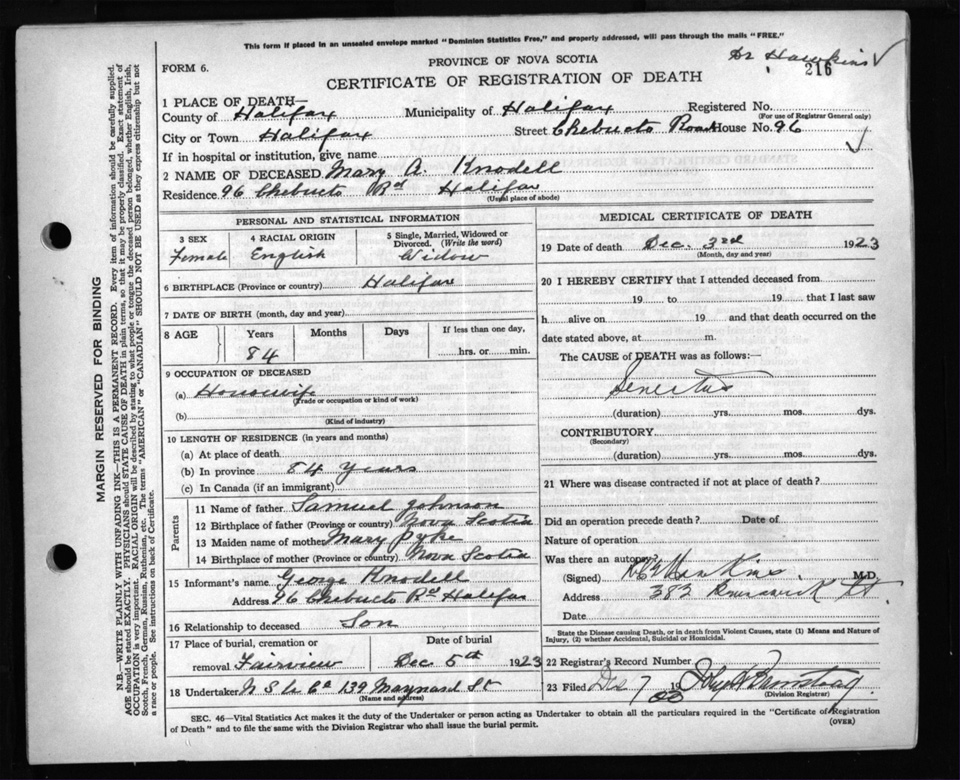 This form if placed in an unsealed envelope marked "Dominion Statistics Free," and properly addressed, will pass through the mails "FREE."
FORM 6.
PROVINCE OF NOVA SCOTIA
Dr Hawkins
216
CERTIFICATE OF REGISTRATION OF DEATH
1 PLACE OF DEATH—
County of Halifax Municipality of Halifax Registered No.
(For use of Registrar General only)
City or Town Halifax Street Chebucto Road House No. 96
If in hospital or institution, give name
2 NAME OF DECEASED Mary A. Knodell
Residence 96 Chebucto Rd Halifax
(Usual place of abode)
PERSONAL AND STATISTICAL INFORMATION
3 SEX
Female
4 RACIAL ORIGIN
English
5 Single, Married, Widowed or
Divorced. (Write the word)
Widow
6 BIRTHPLACE (Province or country) Halifax
7 DATE OF BIRTH (month, day and year)
8 AGE Years Months Days If less than one day,
84 hrs. or min.
9 OCCUPATION OF DECEASED
(a) Housewife
(Trade or occupation or kind of work)
(b)
(Kind of industry)
10 LENGTH OF RESIDENCE (in years and months)
(a) At place of death
(b) In province 84 years
(c) In Canada (if an immigrant)
Parents
11 Name of father Samuel Johnson
12 Birthplace of father (Province or country) Nova Scotia
13 Maiden name of mother Mary Pyke
14 Birthplace of mother (Province or country) Nova Scotia
15 Informant's name George Knodell
Address 96 Chebucto Rd Halifax
16 Relationship to deceased Son
17 Place of burial, cremation or Date of burial
removal Fairview Dec 5th 1923
18 Undertaker N S U Co 139 Maynard St
(Name and address)
MEDICAL CERTIFICATE OF DEATH
19 Date of death Dec. 3rd 1923
(Month, day and year)
20 I HEREBY CERTIFY that I attended deceased from
19 to 19 that I last saw
h alive on 19 and that death occurred on the
date stated above, at m.
The CAUSE of DEATH was as follows:—
Senectus
(duration) yrs. mos. dys.
CONTRIBUTORY
(Secondary)
(duration) yrs. mos. dys.
21 Where was disease contracted if not at place of death?
Did an operation precede death? Date of
Nature of operation
Was there an autopsy?
(Signed) M.D.
Address 382 Brunswick St.
Date
State the Disease causing Death, or in death from Violent Causes, state (1) Means and Nature of
Injury, (2) whether Accidental, Suicidal or Homicidal.
22 Registrar's Record Number
23 Filed Dec 7 19 23
(Division Registrar)
SEC. 46—Vital Statistics Act makes it the duty of the Undertaker or person acting as Undertaker to obtain all the particulars required in the "Certificate of Registration
of Death" and to file the same with the Division Registrar who shall issue the burial permit.
(OVER)
MARGIN RESERVED FOR BINDING
N.B.—WRITE PLAINLY WITH UNFADING INK—THIS IS A PERMANENT RECORD. Every item of information should be carefully supplied.
AGE should be stated EXACTLY. PHYSICIANS should STATE CAUSE OF DEATH in plain terms, so that it may be properly classified. Exact statement of
OCCUPATION is very important. RACIAL ORIGIN will be described by stating to what people or tongue the deceased person belonged, whether English, Irish,
Scotch, French, German, Russian, Ruthenian, etc. The terms "AMERICAN" or "CANADIAN" SHOULD NOT BE USED as they express citizenship but not
a race or people. See instructions on back of Certificate.